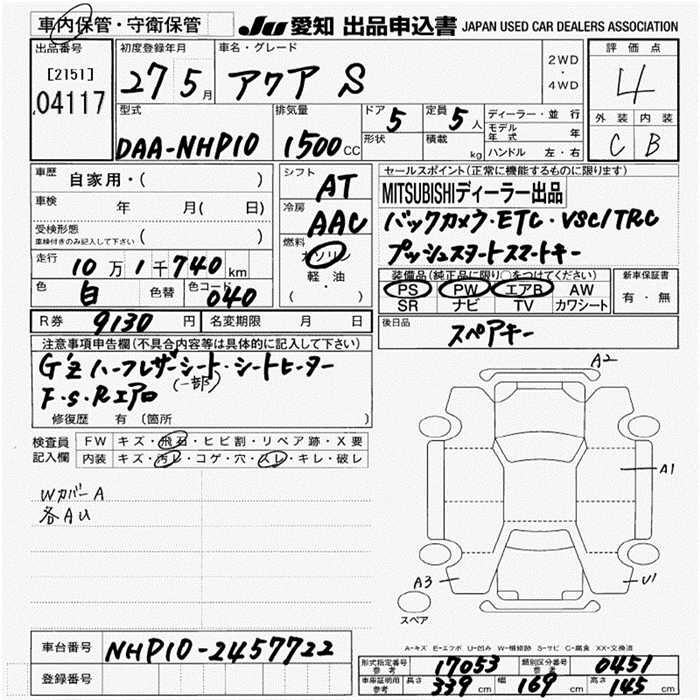 車内保管・守衛保管 JU 愛知 出品申込書 JAPAN USED CAR DEALERS ASSOCIATION
出品番号 初度登録年月 車名・グレード 2WD・4WD 評価点
[2151] 27 5月 アクア S 4
04117
型式 排気量 ドア 5 定員 5人 ディーラー・並行 外装 内装
DAA-NHP10 1500CC 形状 積載 kg モデル年式 年 C B
ハンドル 左・右
車歴 自家用・( ) シフト AT セールスポイント(正常に機能するものに限ります)
車検 年 月( 日) 冷房 AAC MITSUBISHIディーラー出品
受検形態 ( ) バックカメラ・ETC・VSC/TRC
車検付きのみ記入して下さい 燃料 ガソリン プッシュスタートスマートキー
走行 10万1千740km 軽・油 装備品(純正品に限り○をつけてください) 新車保証書
色 白 色替 色コード 040 ( ・ ) PS PW エアB AW 有・無
SR ナビ TV カワシート
R券 9130円 名変期限 月 日 後日品 スペアキー
注意事項申告欄(不具合内容等は具体的に記入して下さい)
G'z ハーフレザーシート・シートヒーター
(一部)
F・S・Rエアロ
修復歴 有 (箇所 )
検査員 FW キズ・飛石・ヒビ割・リペア跡・X要
記入欄 内装 キズ・汚レ・コゲ・穴・スレ・キレ・破レ
Wカバー A
各AU
A2
A1
A3 U1
スペア
A-キズ E-エクボ U-凹み W-補修跡 S-サビ C-腐食 XX-交換済
車台番号 NHP10-2457722
登録番号
形式指定番号 参考 17053 類別区分番号 参考 0451
車庫証明用 参考 長さ 339cm 幅 169cm 高さ 145cm